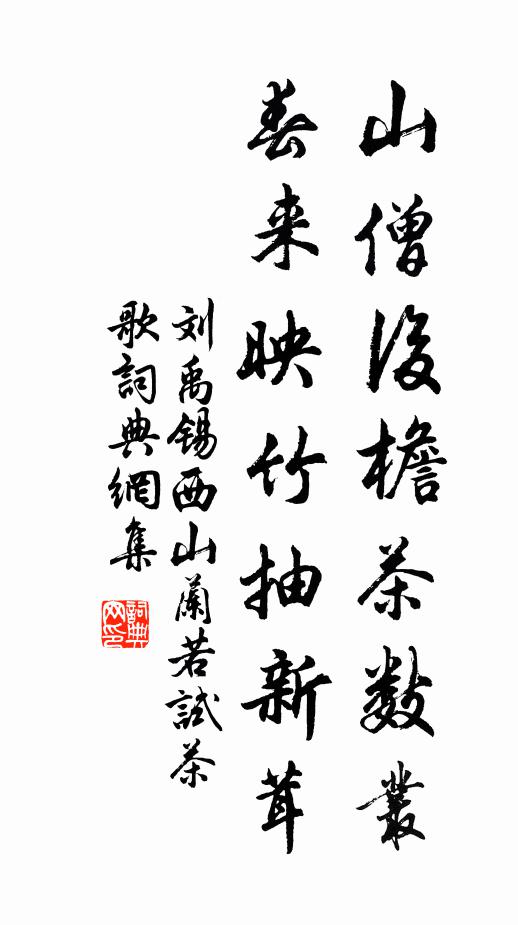 山僧後檐茶數叢
春来映竹抽新茸
刘禹锡西山蘭若試茶
歌詞典網集
詞典
网印